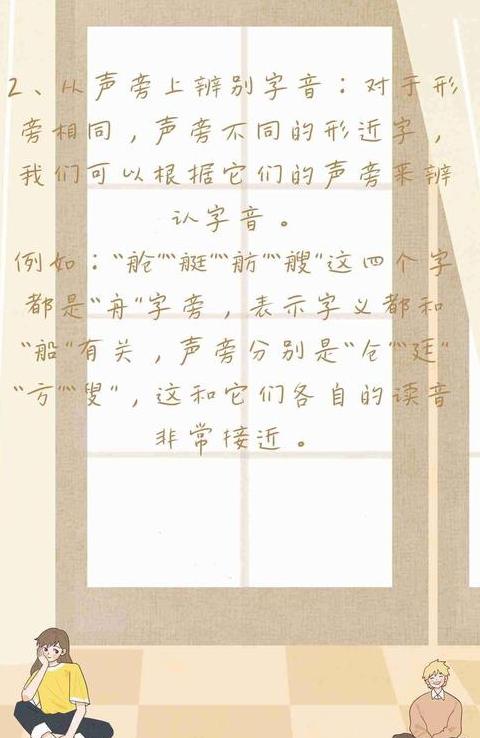 2、从声旁上辨别字音：对于形
旁相同，声旁不同的形近字，
我们可以根据它们的声旁来辨
认字音。
例如：“舱”“艇”“舫”“艘”这四个字
都是“舟”字旁，表示字义都和
“船”有关，声旁分别是“仓”“廷”
“方”“叟”，这和它们各自的读音
非常接近。